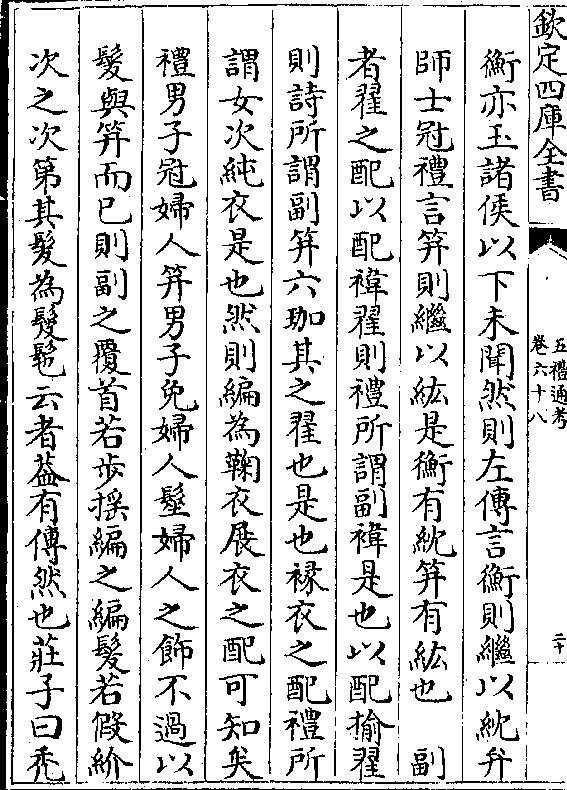 欽定四庫全書
五禮通考
卷六十八
二十
衡亦玉諸侯以下未聞然則左傳言衡則繼以紞弁
師士冠禮言笄則繼以紘是衡有紞笄有紘也　副
者翟之配以配褘翟則禮所謂副褘是也以配揄翟
則詩所謂副笄六珈其之翟也是也褖衣之配禮所
謂女次純衣是也然則編為鞠衣展衣之配可知矣
禮男子冠婦人笄男子免婦人髽婦人之飾不過以
髮與笄而已則副之覆首若步揺編之編髮若假紒
次之次第其髮為髲髢云者葢有傳然也莊子曰禿